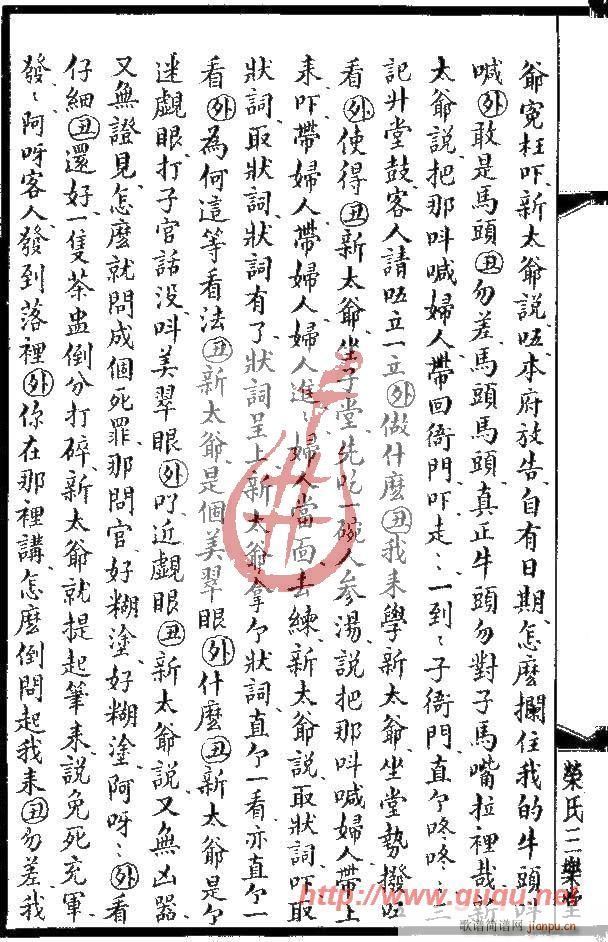 爺冤枉吓新太爺說㕶本府放告自有日期怎麼攔住我的牛頭
喊外敢是馬頭丑勿差馬頭馬頭真正牛頭勿對子馬嘴拉裡哉新
太爺說把那呌喊婦人帶回衙門吓走〻一到〻子衙門直個咚咚三
記升堂鼓客人請㕶立一立外做什麼丑我耒學新太爺坐堂勢撥㕶
看外使得丑新太爺坐子堂先吃一碗人參湯說把那呌喊婦人帶上
耒吓帶婦人帶婦人婦人進婦人當面去練新太爺說取狀詞吓取
狀詞取狀詞狀詞有了狀詞呈上新太爺拿个狀詞直个一看亦直个一
看外為何這等看法丑新太爺是個美翠眼外什麼丑新太爺是个
迷覷眼打子官話沒呌美翠眼外吖近覷眼丑新太爺說又無凶器
又無證見怎麼就問成個死罪那問官好糊塗好糊塗阿呀〻外看
仔細丑還好一隻茶盅倒分打碎新太爺就提起筆耒說免死充軍
發〻阿呀客人發到落裡外你在那裡講怎麼倒問起我耒丑勿差我
榮氏三樂堂
http://www.ququ.net
歌谱简谱网
jianpu.cn